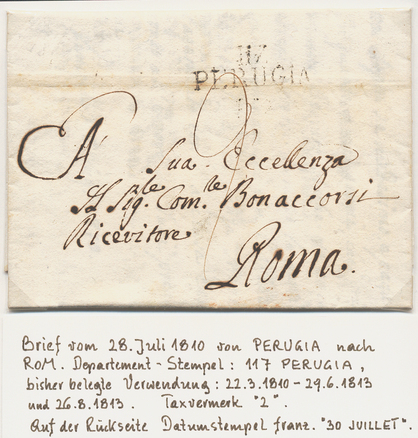 117
PERUGIA
2
A Sua Eccellenza
Il Sig.le Com.te Bonaccorsi
Ricevitore
Roma.
Brief vom 28. Juli 1810 von PERUGIA nach
ROM. Departement-Stempel: 117 PERUGIA,
bisher belegte Verwendung: 22.3.1810-29.6.1813
und 26.8.1813. Taxvermerk "2".
Auf der Rückseite Datumstempel franz. "30 JUILLET".